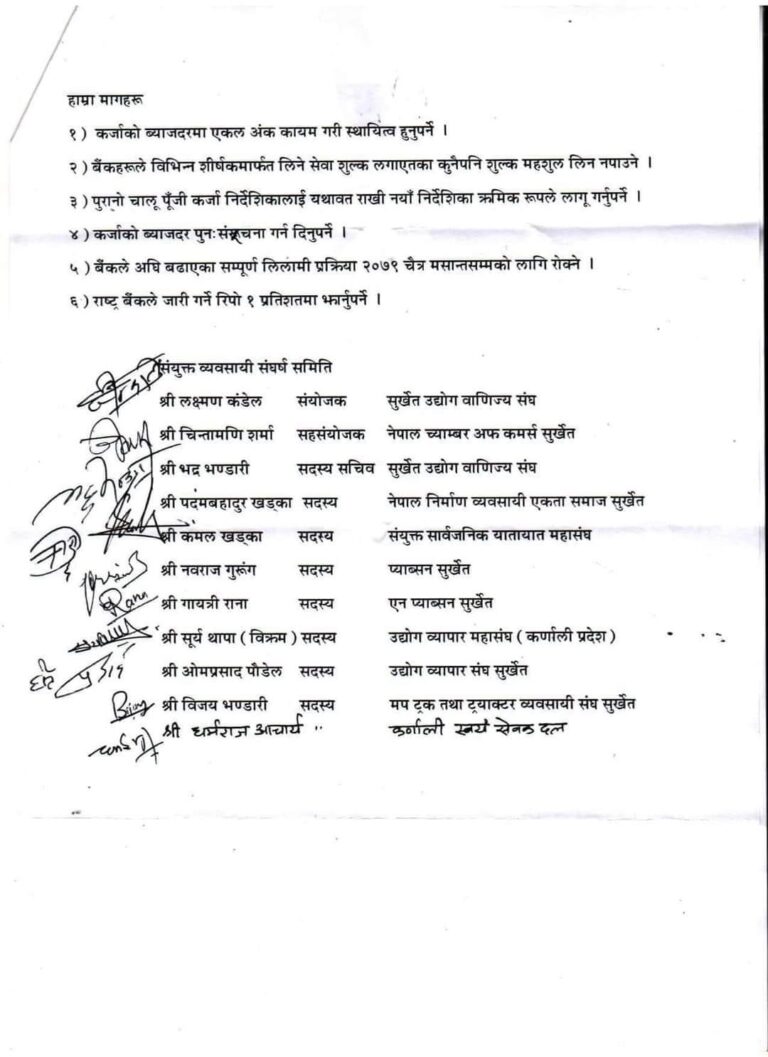 हाम्रा मागहरू
१) कर्जाको ब्याजदरमा एकल अंक कायम गरी स्थायित्व हुनुपर्ने ।
२) बैंकहरूले विभिन्न शीर्षकमार्फत लिने सेवा शुल्क लगाएतका कुनैपनि शुल्क महशुल लिन नपाउने ।
३) पुरानो चालू पूँजी कर्जा निर्देशिकालाई यथावत राखी नयाँ निर्देशिका क्रमिक रूपले लागू गर्नुपर्ने ।
४) कर्जाको ब्याजदर पुनःसंरचना गर्न दिनुपर्ने ।
५) बैंकले अघि बढाएका सम्पूर्ण लिलामी प्रक्रिया २०७९ चैत्र मसान्तसम्मको लागि रोक्ने ।
६) राष्ट्र बैंकले जारी गर्ने रिपो १ प्रतिशतमा झार्नुपर्ने ।
संयुक्त व्यवसायी संघर्ष समिति
श्री लक्ष्मण कंडेल संयोजक सुर्खेत उद्योग वाणिज्य संघ
श्री चिन्तामणि शर्मा सहसंयोजक नेपाल च्याम्बर अफ कमर्स सुर्खेत
श्री भद्र भण्डारी सदस्य सचिव सुर्खेत उद्योग वाणिज्य संघ
श्री पदमबहादुर खड्का सदस्य नेपाल निर्माण व्यवसायी एकता समाज सुर्खेत
श्री कमल खड्का सदस्य संयुक्त सार्वजनिक यातायात महासंघ
श्री नवराज गुरूंग सदस्य प्याब्सन सुर्खेत
Rana श्री गायत्री राना सदस्य एन प्याब्सन सुर्खेत
श्री सूर्य थापा (विक्रम) सदस्य उद्योग व्यापार महासंघ (कर्णाली प्रदेश)
श्री ओमप्रसाद पौडेल सदस्य उद्योग व्यापार संघ सुर्खेत
Bijay श्री विजय भण्डारी सदस्य मप ट्रक तथा ट्रयाक्टर व्यवसायी संघ सुर्खेत
श्री धर्मराज आचार्य ,, कर्णाली स्वयं सेवक दल